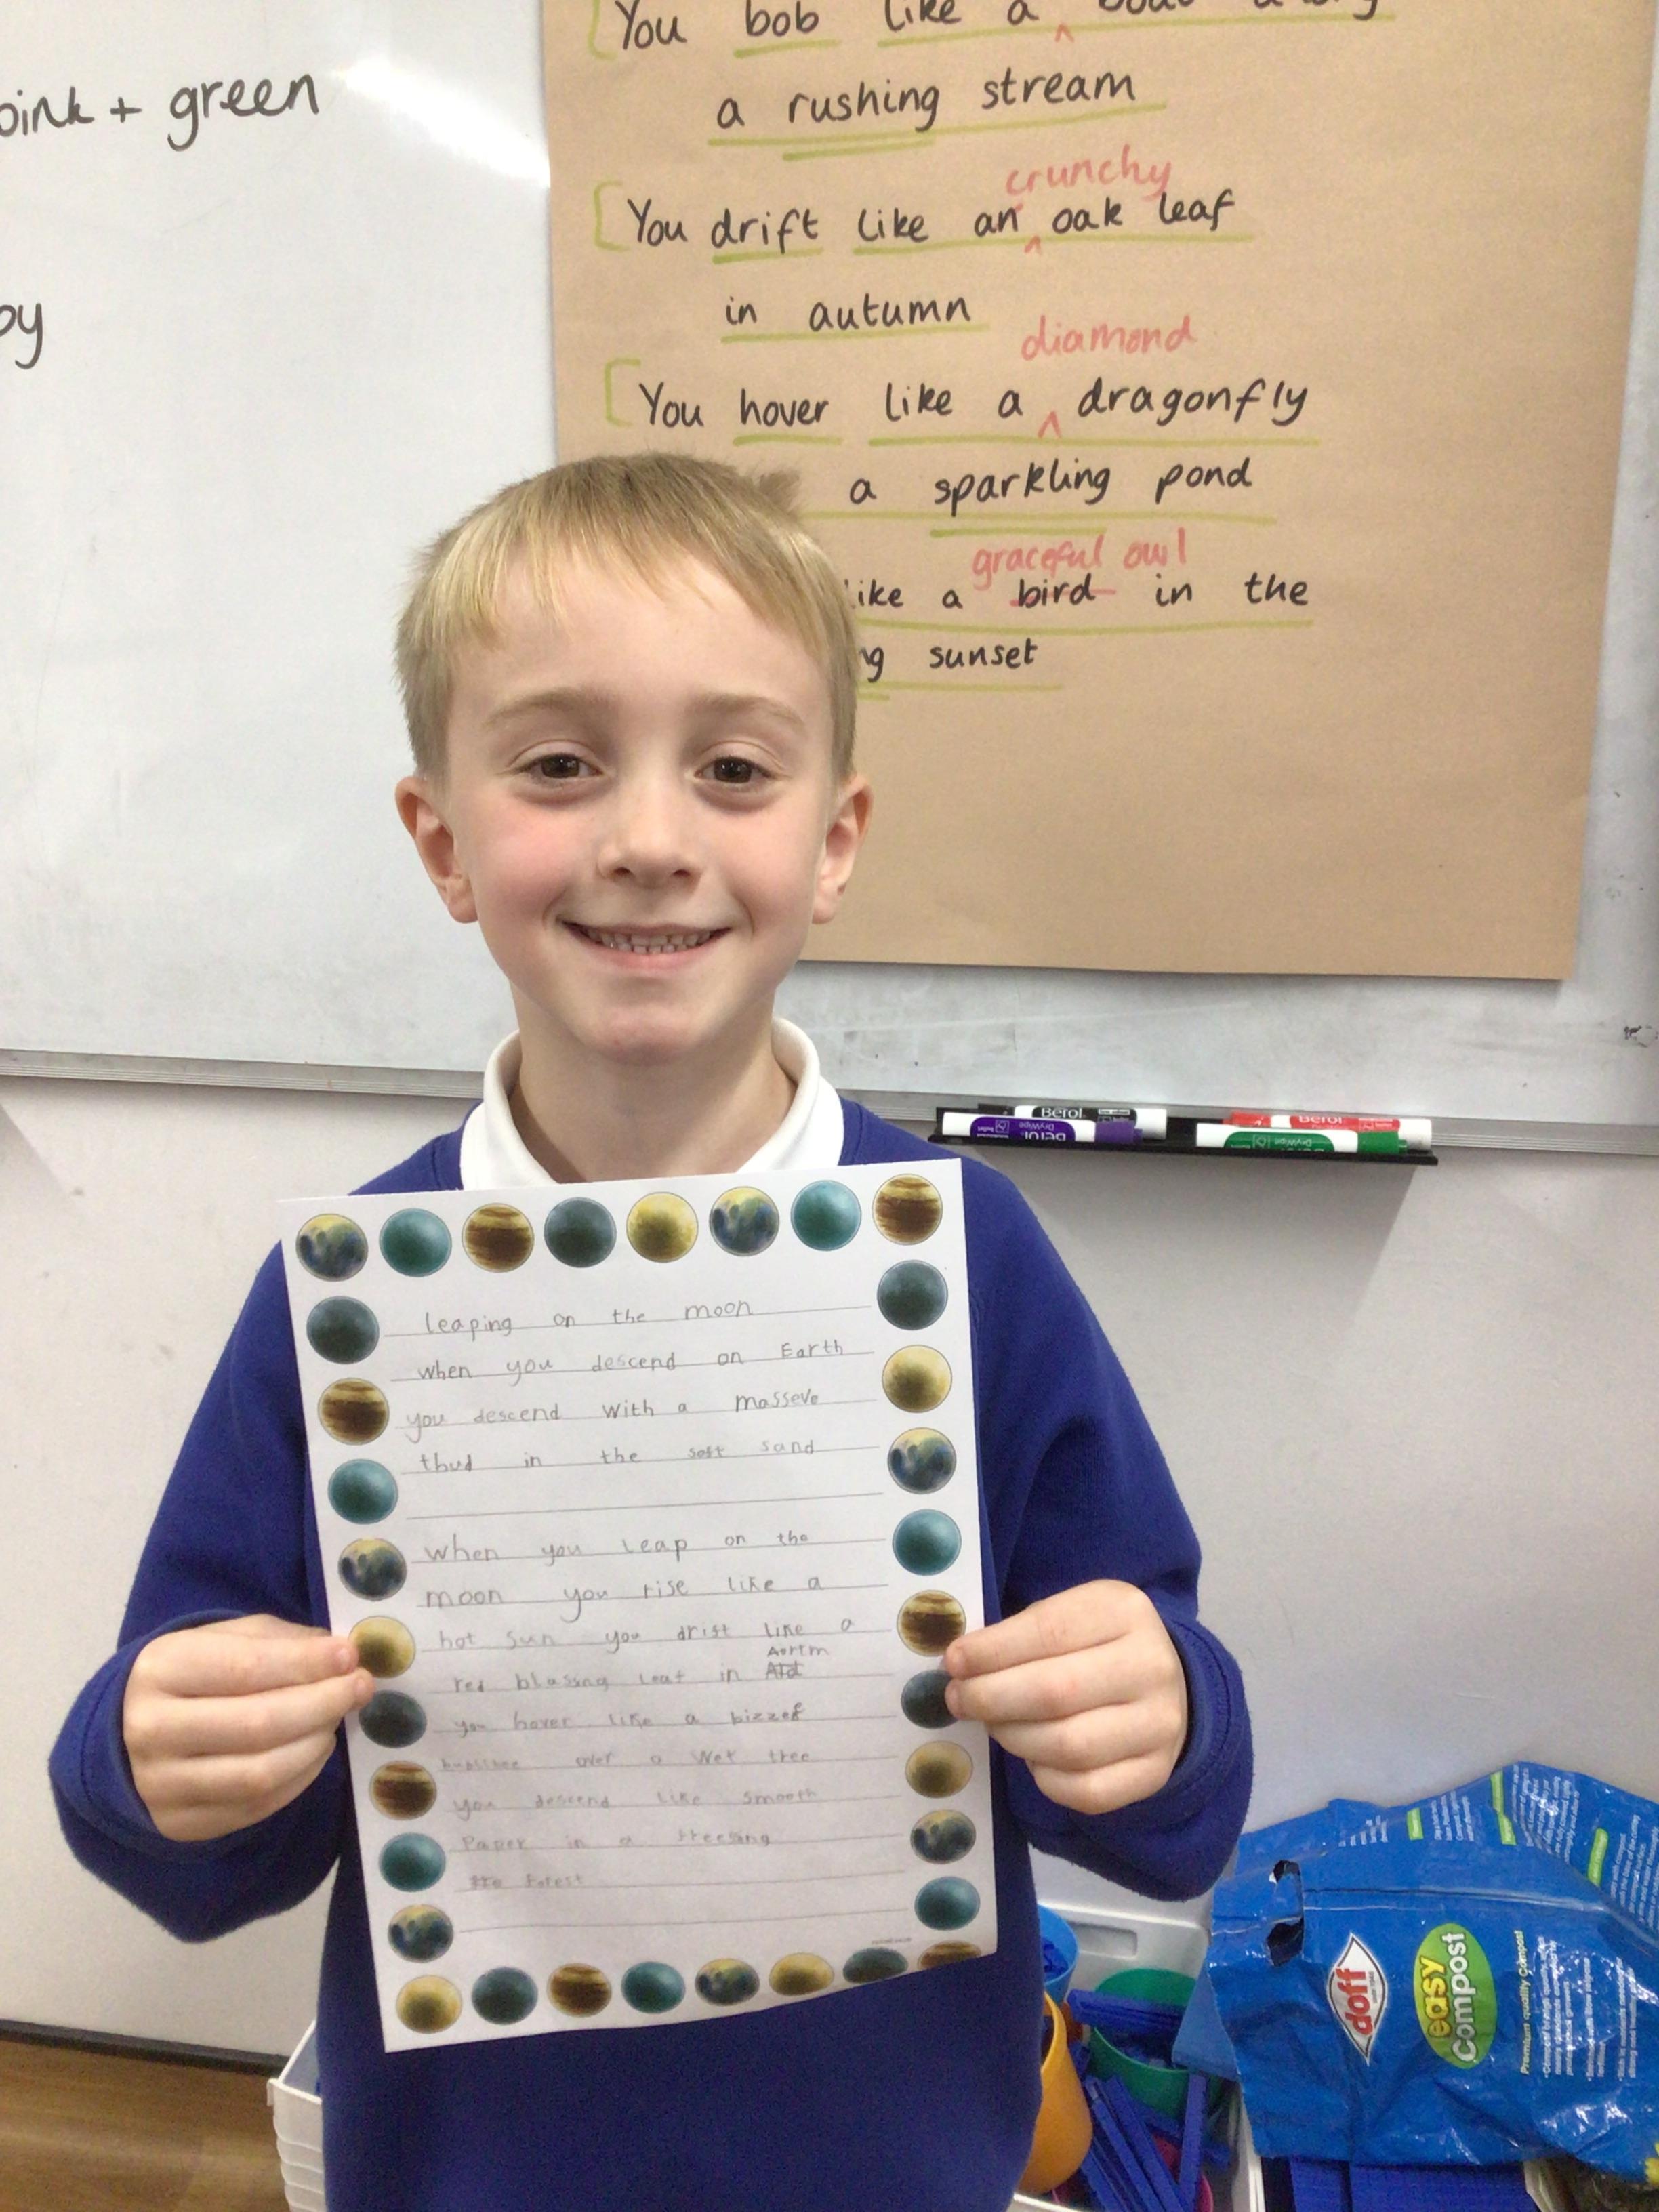 pink + green
You bob like a
a rushing stream
crunchy
You drift like an oak leaf
in autumn
diamond
You hover like a dragonfly
a sparkling pond
graceful owl
like a bird in the
sunset
Berol
Berol
DryWipe
Berol
DryWipe
leaping on the moon
when you descend on Earth
you descend with a masseve
thud in the soft sand
When you leap on the
moon you rise like a
hot sun you drift like a
Aortm
red blasing leaf in
you hover like a
over a wet tree
you descend like smooth
Paper in a freesing
Forest
doff
easy
compost
Premium quality Compost